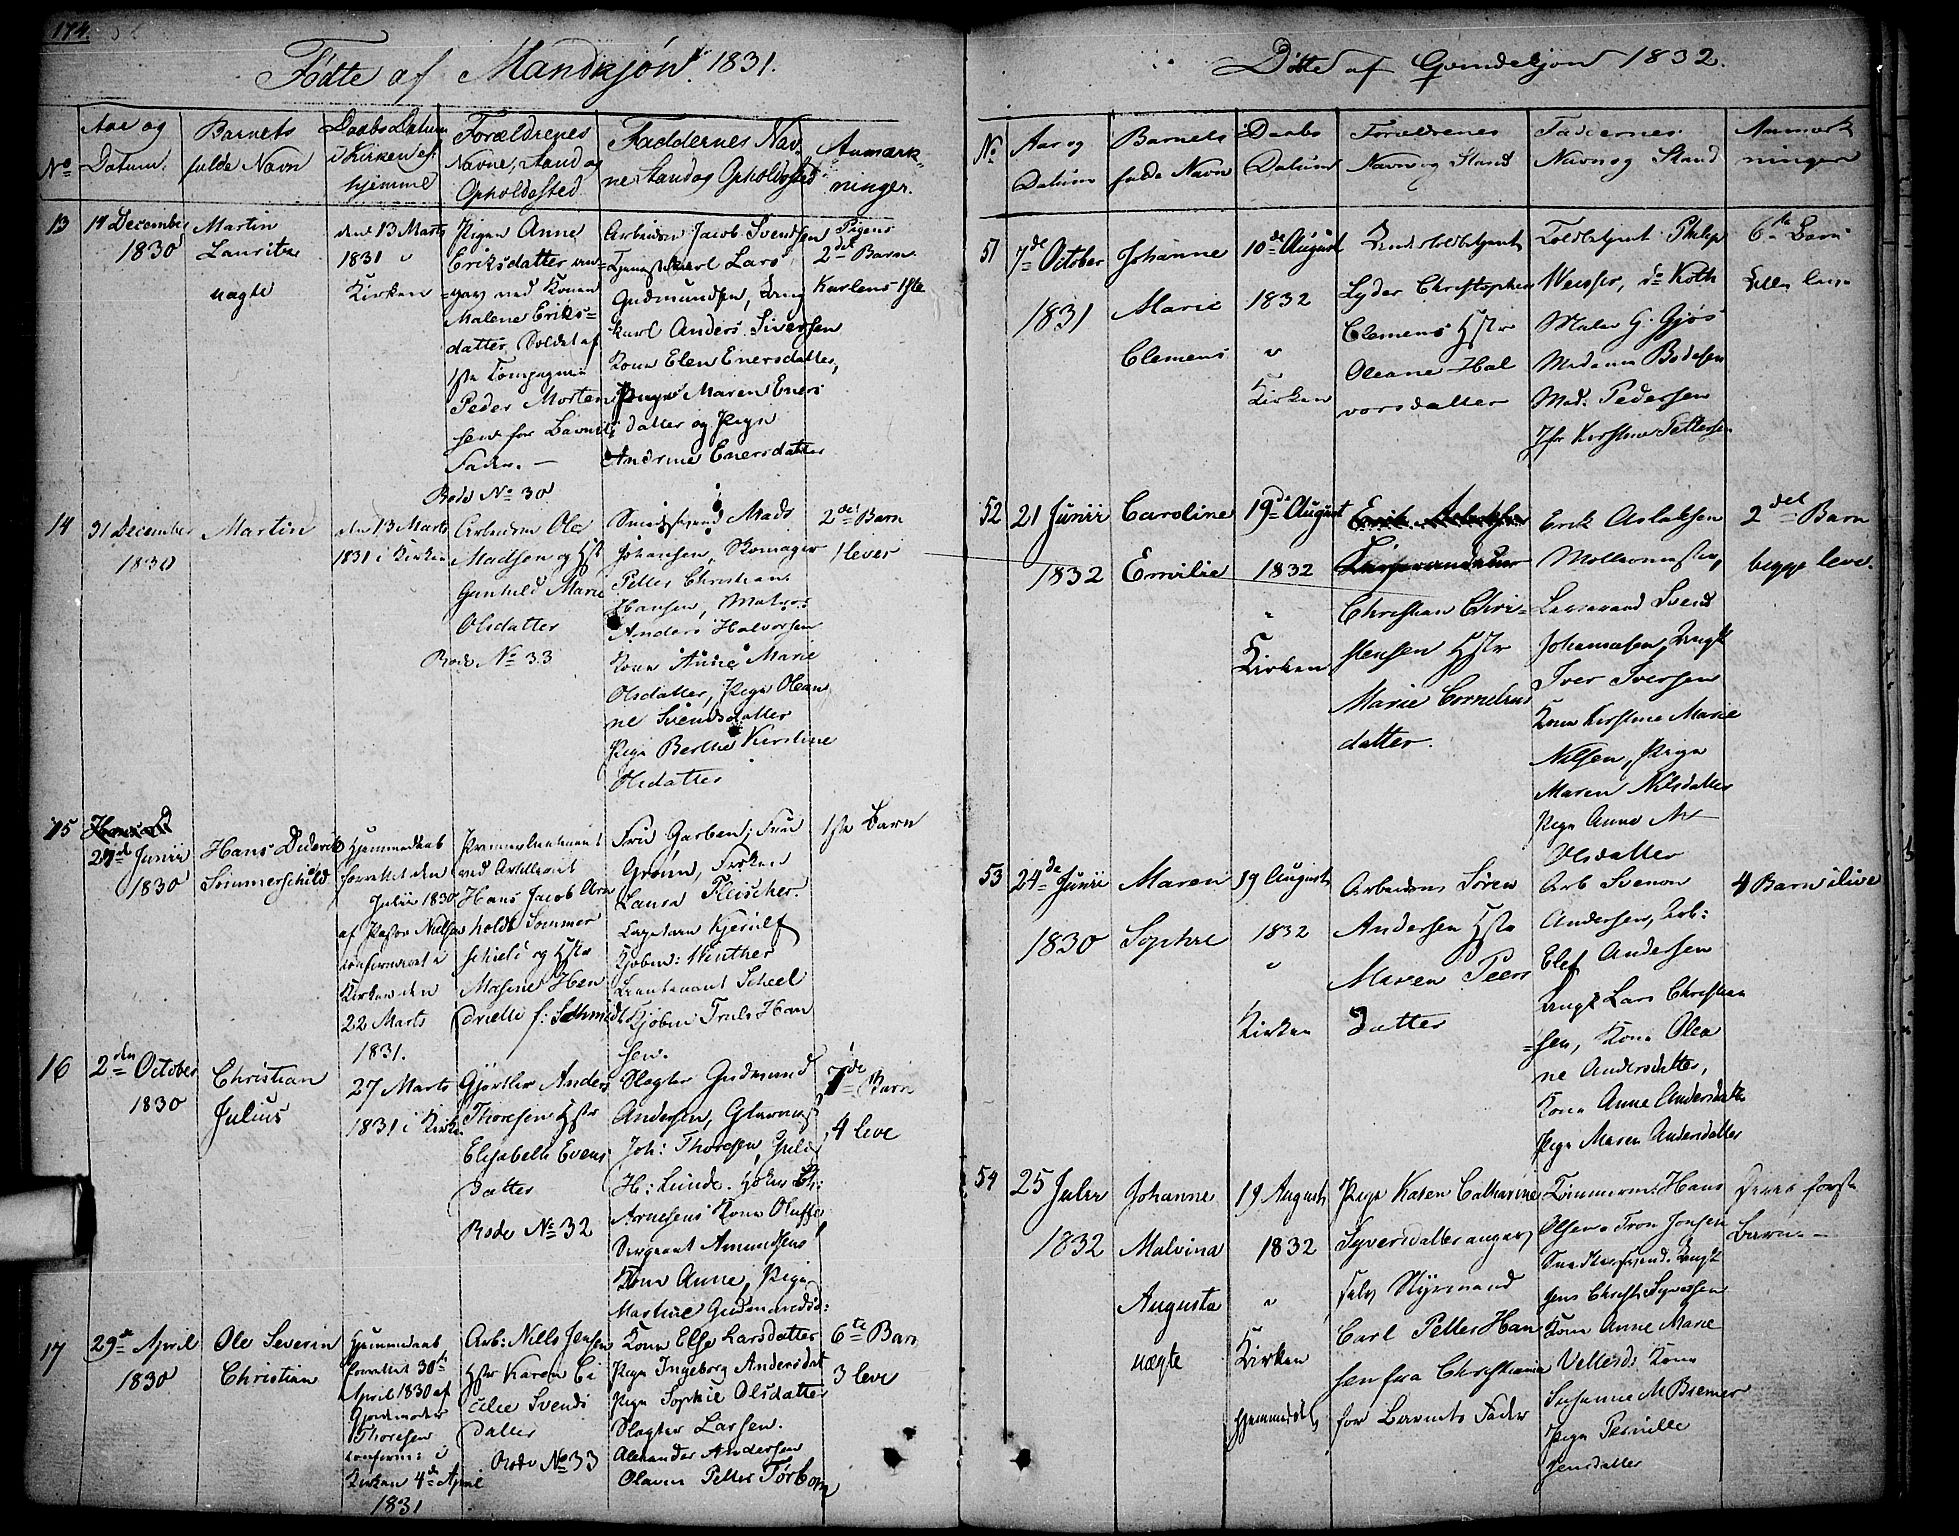 174.
Fødte af Mandkjøn 1831.
No
Aar og
Datum.
Barnets
fulde Navn
Daabs Datum
i Kirken el
hjemme
Forældrenes
Navne, Stand og
Opholdssted
Faddernes Nav
ne Stand og Opholdssted
Anmærk-
ninger.
13
14 December
1830
Martin
Lauritz
uægte
den 13 Marts
1831 i
Kirken
Pigen Anne
Eriksdatter an-
gav ved Konen
Malene Eriks-
datter, Soldat af
1ste Compagnie
Peder Morten
sen for Barnets
Fader. —
Rode No 30
Arbeidsm Jacob Svendsen
Karl Lars
Gudmundsen, Ung
karl Anders Siversen
Kone Elen Enersdatter,
Pige Maren Eners
datter og Pige
Andrine Enersdatter
Pigens
2det Barn
Karlens 1ste
14
31 December
1830
Martin
den 13 Marts
1831 i Kirken
Arbeidsm Ole
Madsen og Hst
Gunhild Marie
Olsdatter
Rode No 33
Smedsvend Mads
Johansen, Skomager
Petter Christian
Hansen, Matros
Anders Halvorsen
Kone Anne Marie
Olsdatter, Pige Olean
ne Svendsdatter
Pige Berthe Kirstine
Olsdatter
2det Barn
1 lever
15
27de Junii
1830
Hans Diderik
Sommerschild
Hjemmedaab
forrettet den
Julii 1830
af Pastor Nielsen
confirmeret i
Kirken den
22 Marts
1831.
Premierlieutenant
ved Artilleriet
Hans Jacob Arn
holdt Sommer
schield og Hst
Masine Hen
driette f: Schmidt
Fru Garben, Frue
Grønn, Frøken
Laura Fleischer.
Capitain Kjerulf
Kjøbm: Winther
Lieutenant Scheel
Kjøbm Truls Han
sen.
1ste Barn
16
2den October
1830
Christian
Julius
27 Marts
1831 i Kirken
Gjørtler Anders
Thoresen Hst
Elisabeth Evens
datter
Rode No 32
Slagter Gudmund
Andersen, Glarmest
Joh: Thoresen, Guld
H: Lunde. Høker Ch:
Arnesens Kone Oluffe
Sergeant Amundsens
Kone Anne, Pige
Marthe Gudmundsd:
7de Barn
4 leve
17
29de April
1830
Ole Severin
Christian
Hjemmedaab
forrettet 30te
April 1830 af
Gjordemoder
Thoresen
confirm: i
Kirken 4de April
1831
Arb: Niels Jensen
Hst Karen Ce
cilie Svends
datter
Rode No 33
Kone Else Larsdatter
Pige Ingeborg Andersdat
Pige Sophie Olsdatter
Slagter Larsen.
Alexander Andersen
Olaves Petter Torborn
6te Barn
3 leve
Døtte af Qvindekjøn 1832.
No
Aar og
Datum
Barnets
fulde Navn
Daabs
Datum
Forældrenes
Navn og Stand
Faddernes
Navn og Stand
Anmærk
ninger
51
7de October
1831
Johanne
Marie
Clemens
10de August
1832
i
Kirken
Lyder Christopher
Clemens Hstr
Oleane Hal
vorsdatter
Toldbetjent Philip
Weisser, do Koth
Maler G. Gjøs
Madame Bodesen
Mad: Pedersen
Jfr Kirstine Pettersen
6te Barn
52
21 Junii
1832
Caroline
Emilie
19de August
1832
i
Kirken
Christian Chri-
stensen Hstr
Marie Cornelius
datter.
Erik Aslaksen
Møllermester,
Svend
Johannesen, Ungk
Iver Iversen
Kone Kirstine Marie
Nilsen, Pige
Maren Nilsdatter
Pige Anne M—
Olsdatter
2det Barn
begge leve.
53
24de Junii
1830
Maren
Sophie
19 August
1832
i
Kirken
Arbeidsm Søren
Andersen Hst
Maren Peers
datter
Arb Svenon
Andersen, Rob:
Elef Andersen
Ungk Lars Christian
sen, Kone Olea
ne Andersdatter,
Kone Anne Andersdatte
Pige Maren Andersdatter
4 Barn i live
54
25 Julii
1832
Johanne
Malvina
Augusta
uægte
19 August
1832
i
Kirken
hjemmedøbt
Pige Karen Catharine
Syversdatter angav
selv Styrmand
Carl Petter Han
sen fra Christiania
for Barnets Fader
Tømmerm: Hans
Olsen, Tron Jensen
Snedkersvend. Ungk
Jens Christ: Syversen
Kone Anne Marie
Vettersd: Kone
Susanne M Bremer
Pige Pernille
Jensdatter
første
Barn. —